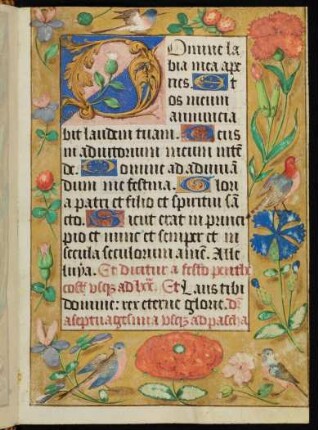 Domine la
bia mea ape
ries. Et
os meum
annuncia
bit laudem tuam. Deus
in adiutorium meum inte̅
de. Domine ad adiuua̅
dum me festina. Glori
a patri et filio et spiritui sa̅
cto. Sicut erat in princi
pio et nunc et semper et in
secula seculorum ame̅. Alle
luya. Et dicitur a festo
usq; ad lxx. Et Laus tibi
domine: rex eterne glorie. d̅r
a septuagesima usq; ad pascha.